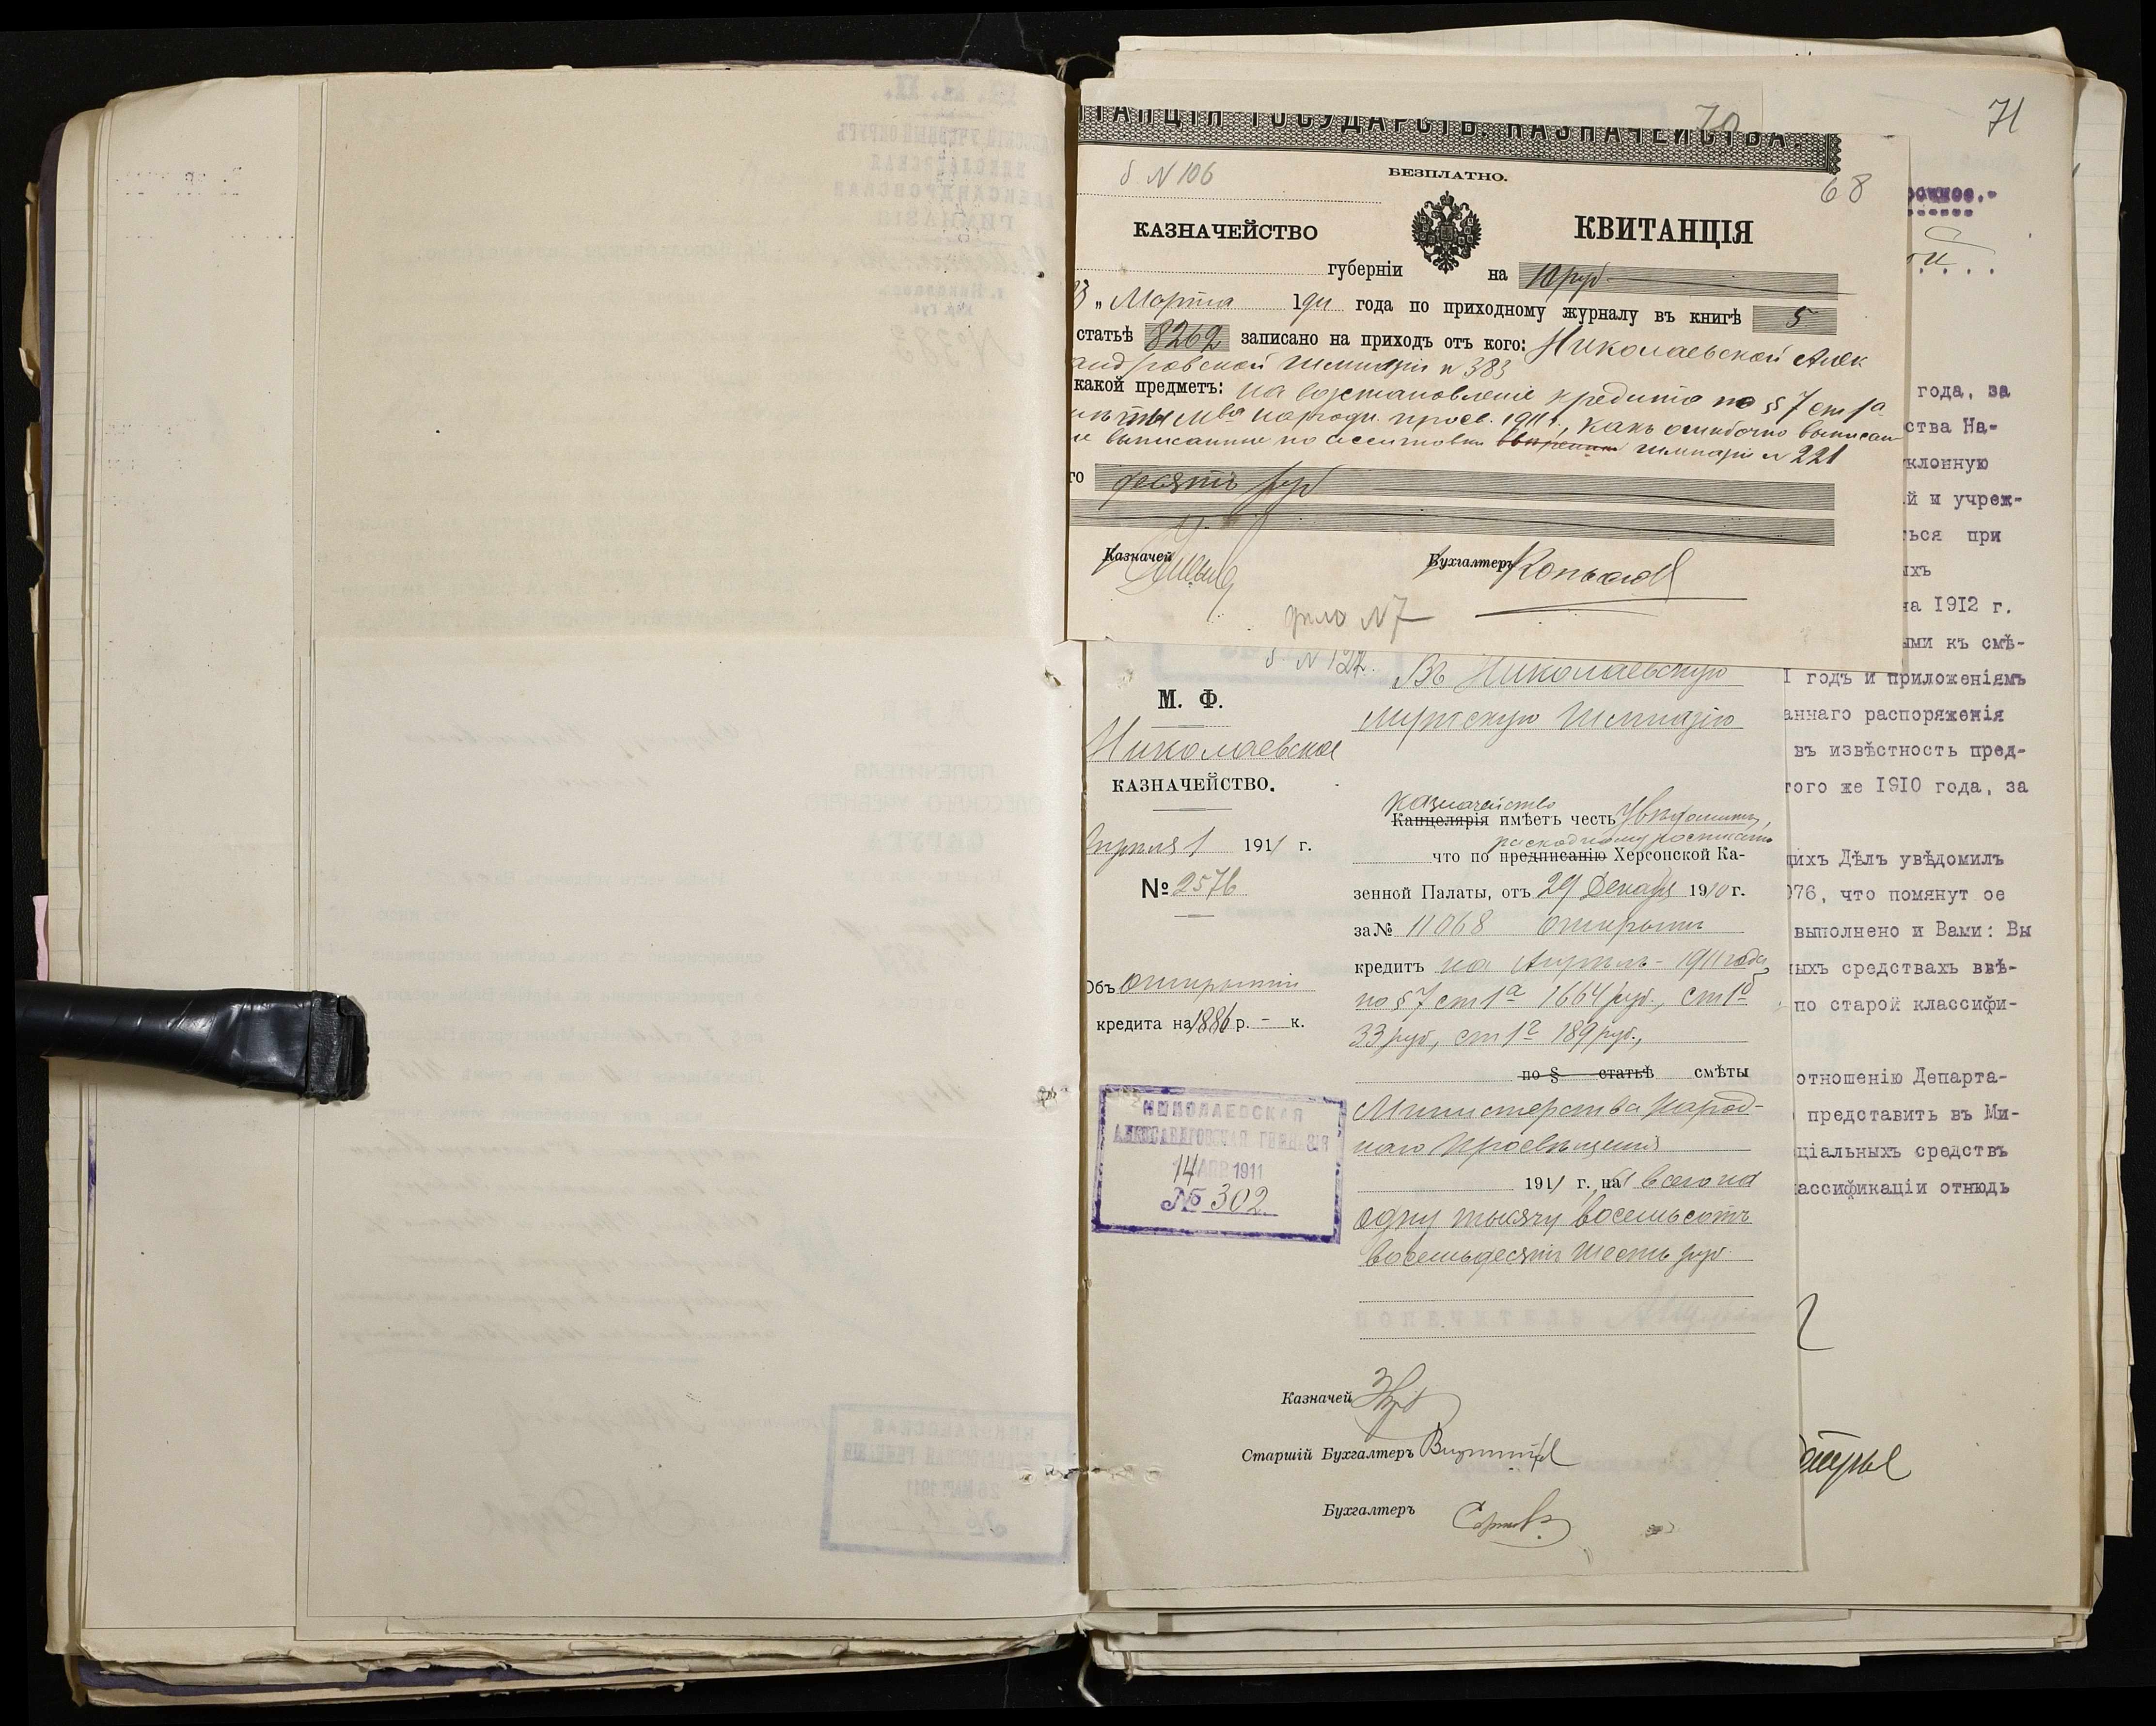 71
70
КВИТАНЦІЯ ГОСУДАРСТВ. КАЗНАЧЕЙСТВА.
68
б N 106
БЕЗПЛАТНО.
КАЗНАЧЕЙСТВО
КВИТАНЦІЯ
губерніи
на 10 руб
Марта 1911 года по приходному журналу въ книгѣ 5
статьѣ 8262 записано на приходъ отъ кого: Николаевской Алек
андровской гимназіи N 383
какой предметъ: на возстановленіе кредита по §§ 7 ст 1а
Мва народн. просв. 1911 г., какъ ошибочно выписан
выписанные по ассигновкѣ гимназіи N 221
десять руб
Казначей
Бухгалтеръ
дело N 7
б N 122.
Въ Николаевскую
мужскую гимназію
М. Ф.
Николаевское
КАЗНАЧЕЙСТВО.
Апреля 1 1911 г.
№ 2576
Объ открытіи
кредита на 1886 р. – к.
НИКОЛАЕВСКАЯ
АЛЕКСАНДРОВСКАЯ ГИМНАЗІЯ
14 АПР 1911
№ 302
казначейство
Канцелярія имѣетъ честь увѣдомить,
расходному росписанію
что по предписанію Херсонской Ка-
зенной Палаты, отъ 29 Декабря 1910 г.
за № 11068 открытъ
кредитъ на Апрѣль - 1911 года
по § 7 ст 1а 1664 руб., ст 1б
33 руб, ст 1г 189 руб.,
по § статьѣ смѣты
Министерства Народ-
наго Просвѣщенія
1911 г. на всего на
одну тысячу восемьсотъ
восемьдесятъ шесть руб.
Казначей
Старшій Бухгалтеръ
Бухгалтеръ
года, за
ства На-
клонную
й и учреж-
ься при
ихъ
на 1912 г.
ыми къ смѣ-
годъ и приложеніямъ
аннаго распоряженія
въ извѣстность пред-
того же 1910 года, за
щихъ Дѣлъ увѣдомилъ
076, что помянут ое
выполнено и Вами: Вы
ныхъ средствахъ ввѣ-
по старой классифи-
отношенію Департа-
представить въ Ми-
ціальныхъ средствъ
ассификаціи отнюдь